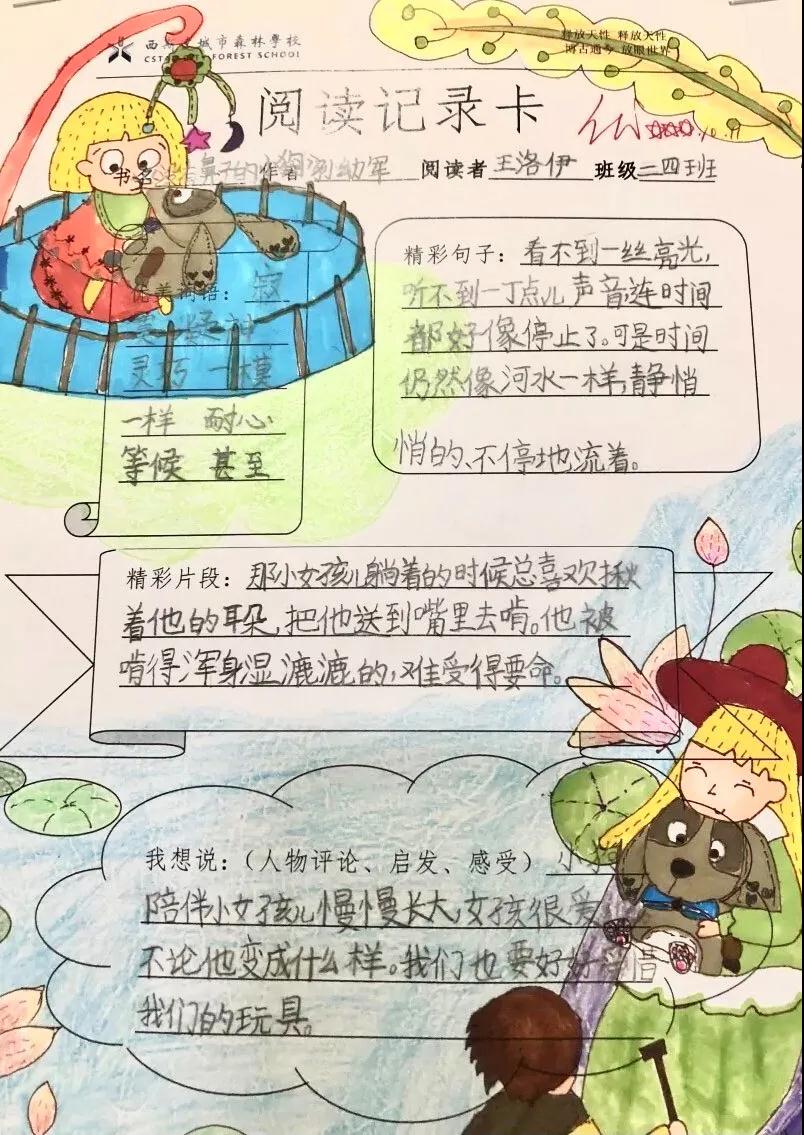 城市森林學校
FOREST SCHOOL
释放天性 释放天性
博古通今 放眼世界
阅读记录卡
书名 鼻子的小狗 作者 刘幼军 阅读者 王洛伊 班级 二四班
优美词语：寂
寞
灵巧 一模
一样 耐心
等候 甚至
精彩句子：看不到一丝亮光，
听不到一丁点儿声音，连时间
都好像停止了。可是时间
仍然像河水一样，静悄
悄的、不停地流着。
精彩片段：那小女孩儿躺着的时候总喜欢揪
着他的耳朵，把他送到嘴里去啃。他被
啃得浑身湿漉漉的，难受得要命。
我想说：（人物评论、启发、感受）小
陪伴小女孩儿慢慢长大，女孩很爱
不论他变成什么样。我们也要好好惜
我们的玩具。